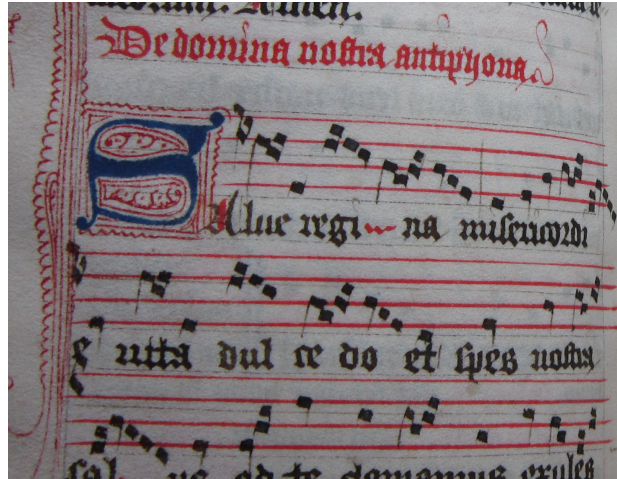 Amen.
De domina nostra antiphona
Salue regi na misericordi
e uita dul ce do et spes nostra
sal ue ad te clamamus exules